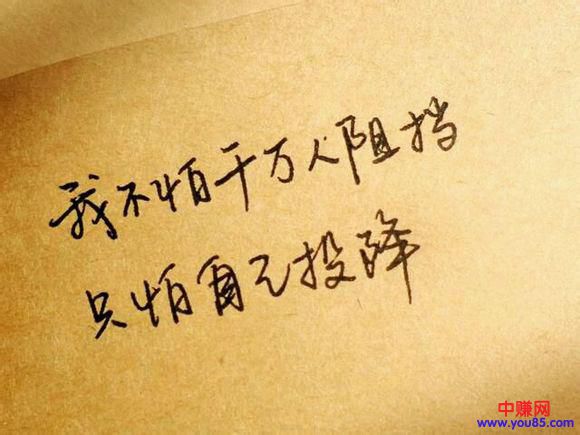 我不怕千万人阻挡
只怕自己投降
中赚网
www.you85.com